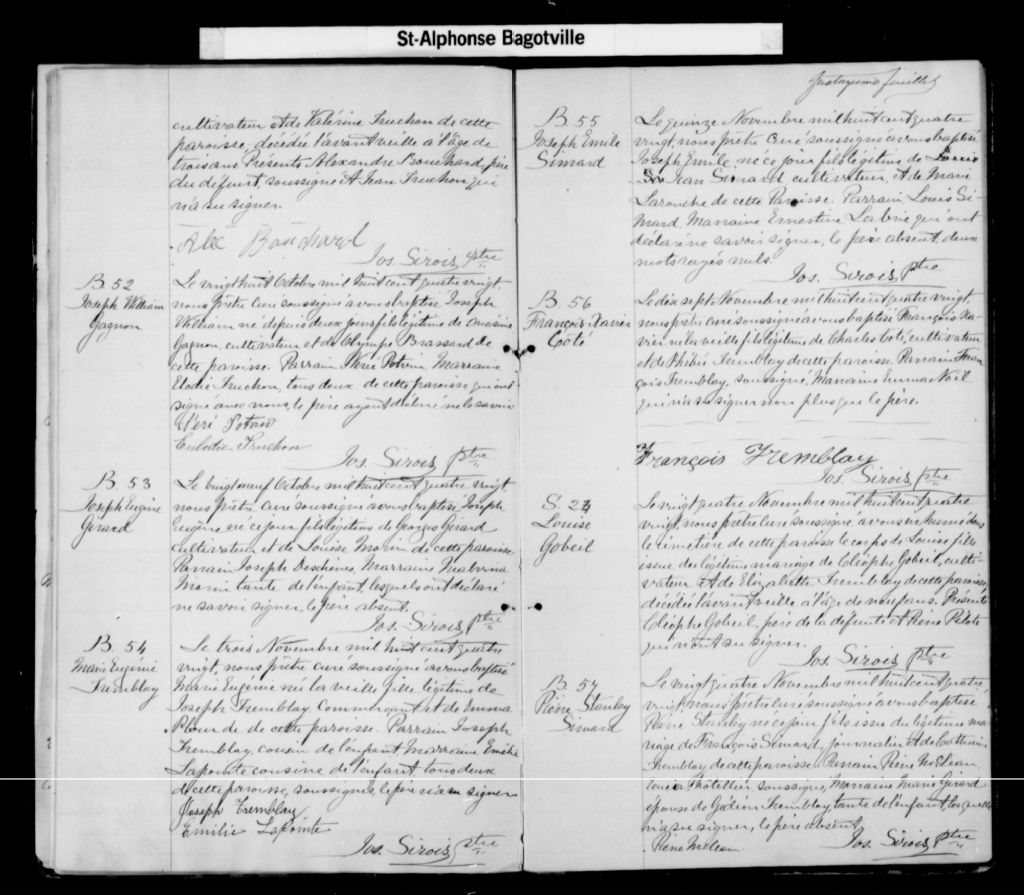 St-Alphonse Bagotville
cultivateur et de Valérine Truchon de cette
paroisse, décédé l'avant veille à l'âge de
trois ans. Présents Alexandre Bouchard père
du défunt, soussigné et Jean Truchon qui
n'a su signer.
Alex Bouchard
Jos. Sirois, Ptre
B. 52
Joseph William
Gagnon
Le vingt huit Octobre mil huit cent quatre vingt,
nous prêtre curé soussigné avons baptisé Joseph
William né depuis deux jours fils légitime de Onésime
Gagnon, cultivateur et de Olympe Brassard de
cette paroisse. Parrain Néré Potvin, Marraine
Elodie Truchon, tous deux de cette paroisse qui ont
signé avec nous, le père ayant déclaré ne le savoir
Néré Potvin
Truchon
Jos. Sirois, Ptre
B. 53
Joseph Eugène
Girard
Le vingt neuf Octobre mil huit cent quatre vingt,
nous prêtre curé soussigné avons baptisé Joseph
Eugène né ce jour fils légitime de Georges Girard
cultivateur et de Louise Morin de cette paroisse.
Parrain Joseph Deschenes, Marraine
Morin tante de l'enfant, lesquels ont déclaré
ne savoir signer, le père absent.
Jos. Sirois, Ptre
B. 54
Marie Eugénie
Tremblay
Le trois Novembre mil huit cent quatre
vingt, nous prêtre curé soussigné avons baptisé
Marie Eugénie née la veille fille légitime de
Joseph Tremblay Commerçant et de Emma
Plourde de cette paroisse. Parrain Joseph
Tremblay, cousin de l'enfant marraine Emélie
Lapointe cousine de l'enfant tous deux
de cette paroisse, soussignés, le père n'a su signer
Joseph Tremblay
Emilie Lapointe
Jos. Sirois, Ptre
feuillet
B. 55
Joseph Emile
Simard
Le quinze Novembre mil huit cent quatre
vingt, nous prêtre curé soussigné avons baptisé
Joseph Emile, né ce jour fils légitime de Louis
Jean Simard, cultivateur, et de Marie
Larouche de cette Paroisse. Parrain, Louis Si-
mard, Marraine Ernestine Labrie qui ont
déclaré ne savoir signer, le père absent, deux
mots rayés nuls.
Jos. Sirois, Ptre
B. 56
François Xavier
Côté
Le dix sept Novembre mil huit cent quatre vingt,
nous prêtre curé soussigné avons baptisé François Xa-
vier né la veille fils légitime de Charles Côté, cultivateur
et de Phébée Tremblay de cette paroisse. Parrain Fran
çois Tremblay, soussigné, Marraine Emma Noël
qui n'a su signer non plus que le père.
François Tremblay
Jos. Sirois, Ptre
S. 23
Louise
Gobeil
Le vingt quatre Novembre mil huit cent quatre
vingt, nous prêtre curé soussigné avons inhumé dans
le cimetière de cette paroisse le corps de Louise fille
issue du légitime mariage de Cléophe Gobeil, culti-
vateur et de Elizabeth Tremblay de cette paroisse,
décédée l'avant veille à l'âge de neuf ans. Présents
Cléophe Gobeil, père de la défunte et René Pilote
qui n'ont su signer.
Jos. Sirois, Ptre
B. 57
Pierre Stanley
Simard
Le vingt quatre Novembre mil huit cent quatre
vingt, nous prêtre curé soussigné avons baptisé
Pierre Stanley né ce jour fils issu du légitime ma-
riage de François Simard, journalier et de Catherine
Tremblay de cette paroisse. Parrain René McLean,
hôtellier, soussigné, Marraine Marie Girard
épouse de Gédéon Tremblay, tante de l'enfant, laquelle
n'a su signer, le père absent.
René McLean
Jos. Sirois, Ptre